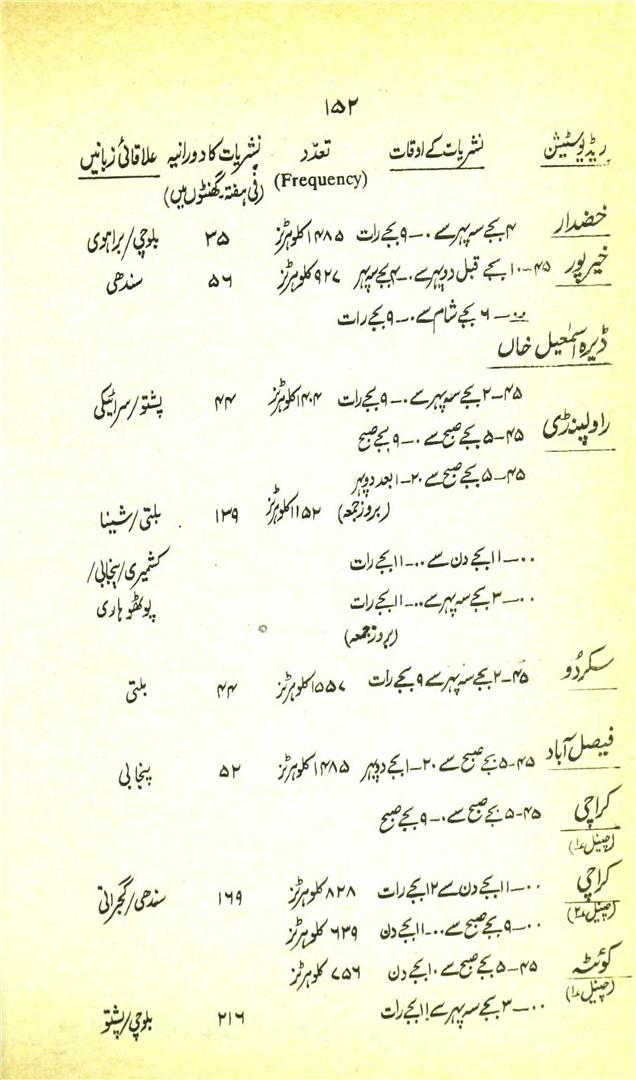 ۱۵۲
ریڈیو سٹیشن نشریات کے اوقات تعدّد نشریات کا دورانیہ علاقائی زبانیں
(Frequency) (فی ہفتہ گھنٹوں میں)
خضدار ۴ بجے سہ پہر سے ۰–۹ بجے رات ۱۴۸۵ کلوہرٹز ۳۵ بلوچی/براہوی
خیرپور ۴۵–۱۰ بجے قبل دوپہر سے ۰–۴ بجے سہ پہر ۹۲۷ کلوہرٹز ۵۶ سندھی
۰۰–۶ بجے شام سے ۰–۹ بجے رات
ڈیرہ اسمٰعیل خاں
۴۵–۲ بجے سہ پہر سے ۰–۹ بجے رات ۱۴۰۴ کلوہرٹز ۴۴ پشتو/سرائیکی
راولپنڈی ۴۵–۵ بجے صبح سے ۰–۹ بجے صبح
۴۵–۵ بجے صبح سے ۲۰–۱ بعد دوپہر
(بروز جمعہ) ۱۱۵۲ کلوہرٹز ۱۳۹ بلتی/شینا
۰۰–۱۱ بجے دن سے ۰۰–۱۱ بجے رات کشمیری/پنجابی/
۰۰–۳ بجے سہ پہر سے ۰۰–۱۱ بجے رات پوٹھوہاری
(بروز جمعہ)
سکردُو ۴۵–۲ بجے سہ پہر سے ۹ بجے رات ۱۵۵۷ کلوہرٹز ۴۴ بلتی
فیصل آباد ۴۵–۵ بجے صبح سے ۲۰–۱ بجے دوپہر ۱۴۸۵ کلوہرٹز ۵۲ پنجابی
کراچی ۴۵–۵ بجے صبح سے ۰–۹ بجے صبح
(چینل ۱)
کراچی ۰۰–۱۱ بجے دن سے ۱۲ بجے رات ۸۲۸ کلوہرٹز ۱۶۹ سندھی/گجراتی
(چینل ۲) ۰۰–۹ بجے صبح سے ۰۰–۱۱ بجے دن ۶۳۹ کلوہرٹز
کوئٹہ ۴۵–۵ بجے صبح سے ۱۰ بجے دن ۷۵۶ کلوہرٹز
(چینل ۱) ۰۰–۳ بجے سہ پہر سے ۱۱ بجے رات ۲۱۶ بلوچی/پشتو